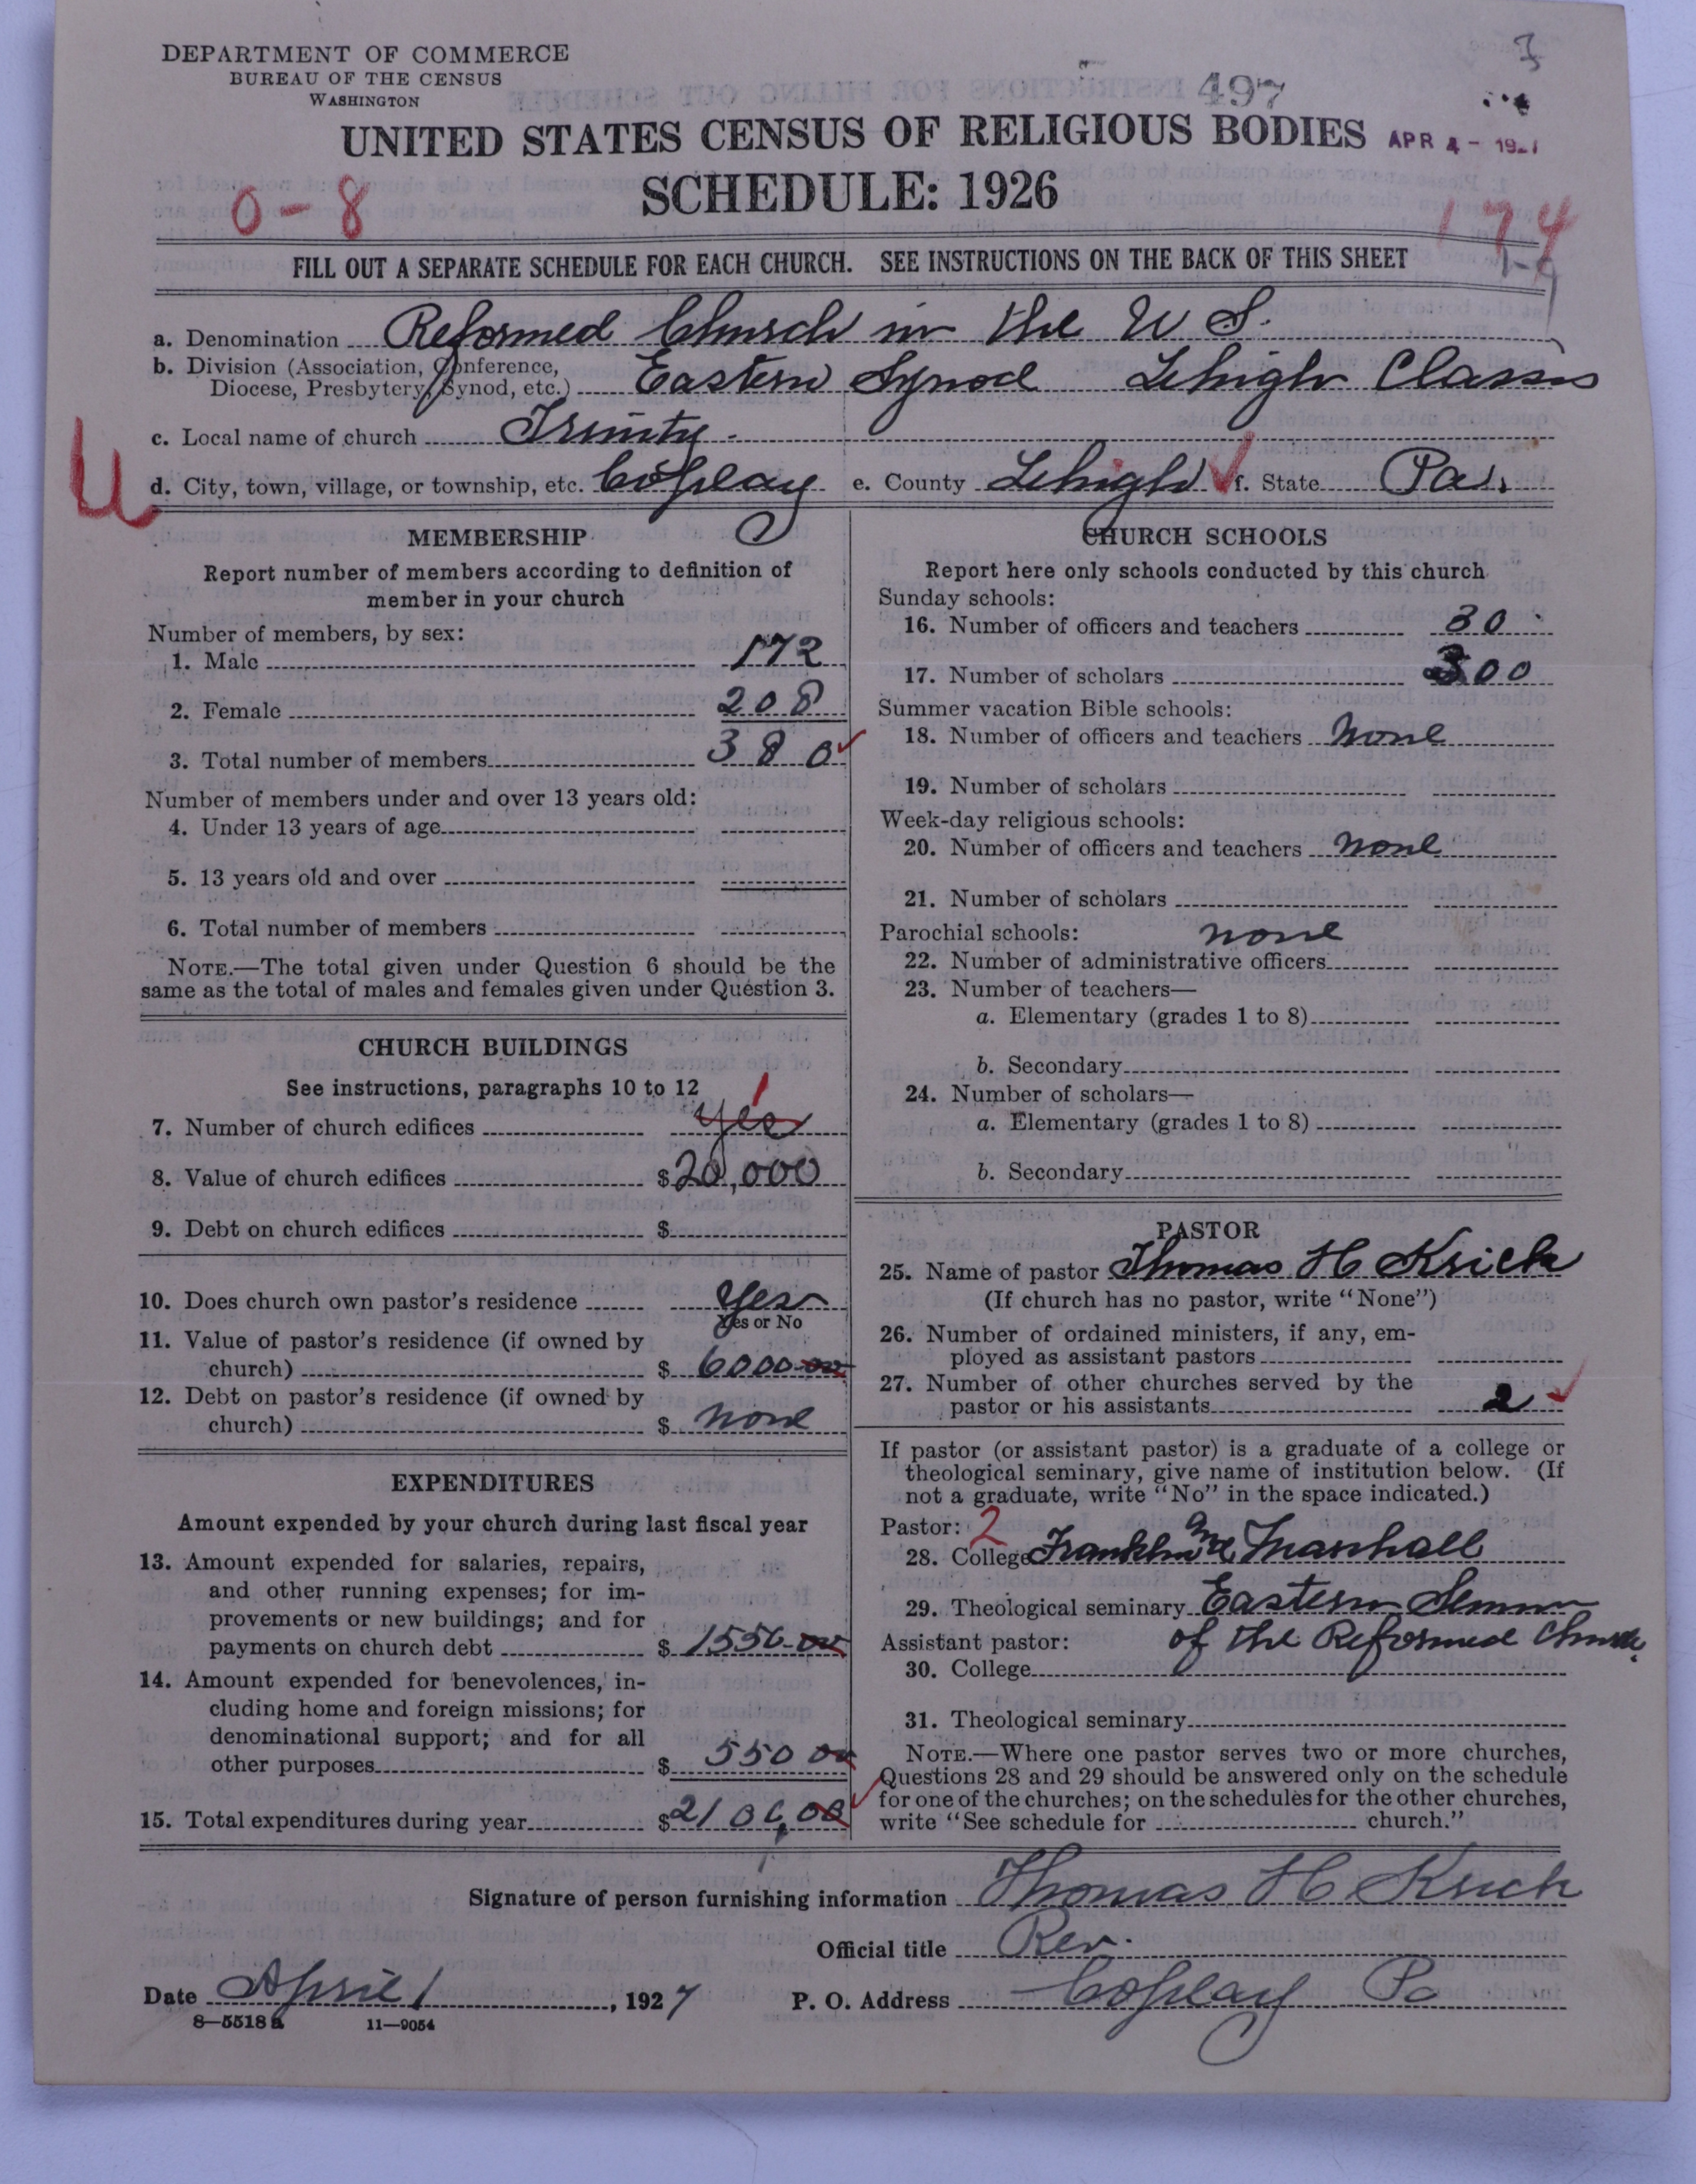 DEPARTMENT OF COMMERCE
BUREAU OF THE CENSUS
WASHINGTON
497
UNITED STATES CENSUS OF RELIGIOUS BODIES
APR 4 - 192
SCHEDULE: 1926
0-8
174
FILL OUT A SEPARATE SCHEDULE FOR EACH CHURCH. SEE INSTRUCTIONS ON THE BACK OF THIS SHEET
a. Denomination Reformed Church in the U S.
b. Division (Association, Conference,
Diocese, Presbytery, Synod, etc.) Eastern Synod Lehigh Classis
c. Local name of church Trinity
U
d. City, town, village, or township, etc. Coplay e. County Lehigh f. State Pa.
MEMBERSHIP
Report number of members according to definition of
member in your church
Number of members, by sex:
1. Male 172
2. Female 208
3. Total number of members 380
Number of members under and over 13 years old:
4. Under 13 years of age
5. 13 years old and over
6. Total number of members
NOTE.—The total given under Question 6 should be the
same as the total of males and females given under Question 3.
CHURCH BUILDINGS
See instructions, paragraphs 10 to 12
1
7. Number of church edifices yes
8. Value of church edifices $20,000
9. Debt on church edifices $
10. Does church own pastor's residence Yes
Yes or No
11. Value of pastor's residence (if owned by
church) $ 6000.00
12. Debt on pastor's residence (if owned by
church) $ none
EXPENDITURES
Amount expended by your church during last fiscal year
13. Amount expended for salaries, repairs,
and other running expenses; for im-
provements or new buildings; and for
payments on church debt $ 1556.00
14. Amount expended for benevolences, in-
cluding home and foreign missions; for
denominational support; and for all
other purposes $ 550 00
15. Total expenditures during year $2106,00
CHURCH SCHOOLS
Report here only schools conducted by this church
Sunday schools:
16. Number of officers and teachers 30
17. Number of scholars 300
Summer vacation Bible schools:
18. Number of officers and teachers None
19. Number of scholars
Week-day religious schools:
20. Number of officers and teachers none
21. Number of scholars
Parochial schools: none
22. Number of administrative officers
23. Number of teachers—
a. Elementary (grades 1 to 8)
b. Secondary
24. Number of scholars—
a. Elementary (grades 1 to 8)
b. Secondary
PASTOR
25. Name of pastor Thomas H Krick
(If church has no pastor, write "None")
26. Number of ordained ministers, if any, em-
ployed as assistant pastors
27. Number of other churches served by the
pastor or his assistants 2
If pastor (or assistant pastor) is a graduate of a college or
theological seminary, give name of institution below. (If
not a graduate, write "No" in the space indicated.)
Pastor: 2
28. College Franklin and Marshall
29. Theological seminary Eastern
Assistant pastor: of the Reformed Church.
30. College
31. Theological seminary
NOTE.—Where one pastor serves two or more churches,
Questions 28 and 29 should be answered only on the schedule
for one of the churches; on the schedules for the other churches,
write "See schedule for church."
Signature of person furnishing information Thomas H Krick
Official title Rev.
Date April 1, 1927 P. O. Address Coplay Pa
8—5518 a 11—9054